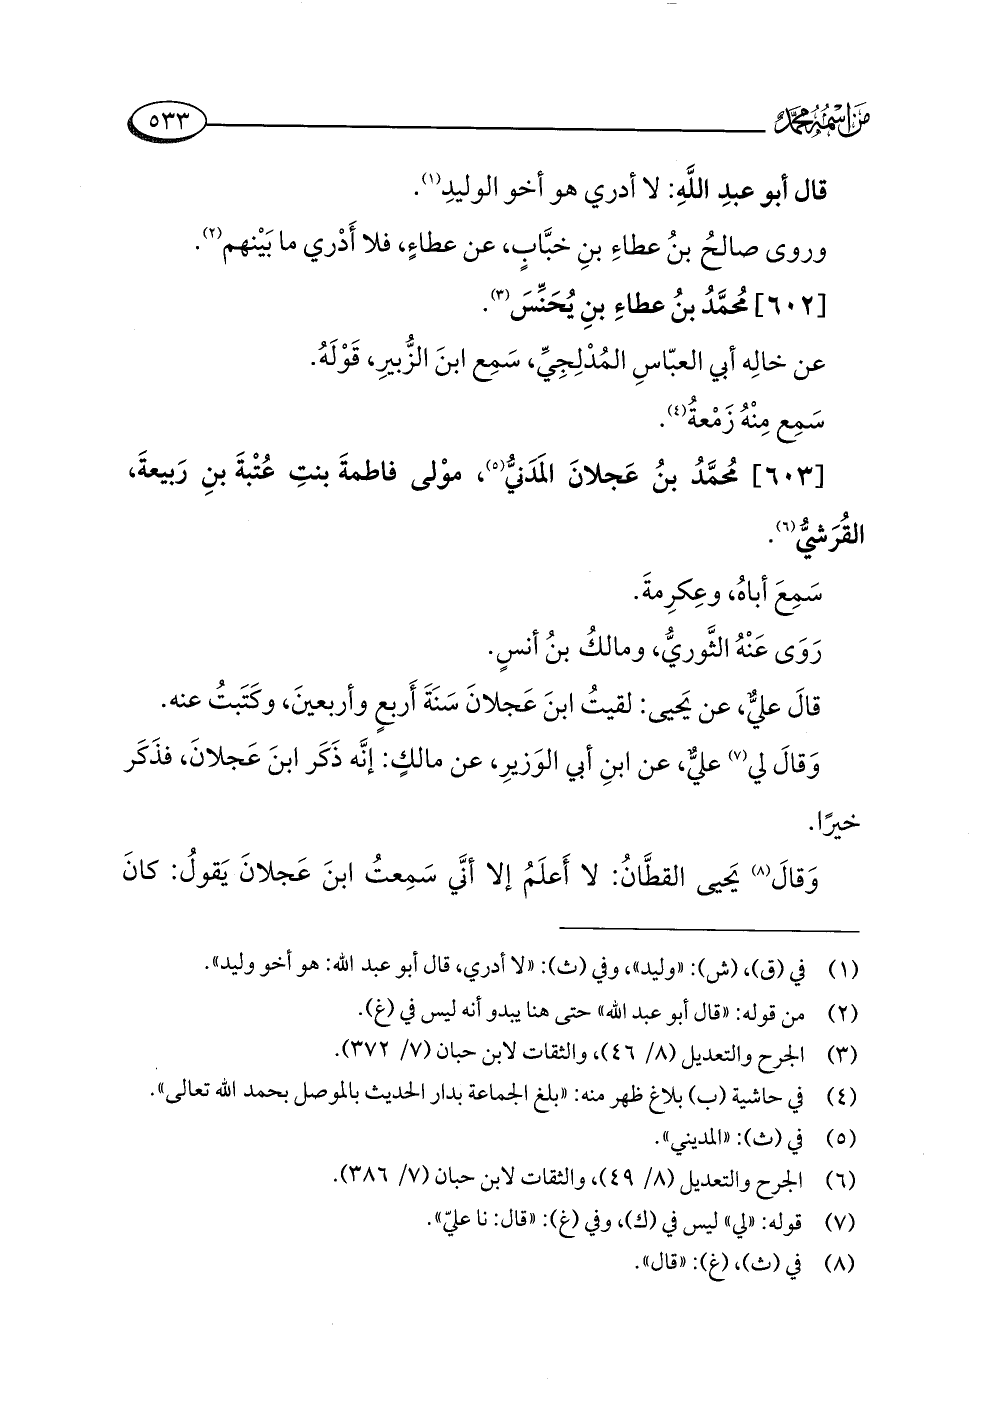 مَن اسْمُهُ مُحَمَّدٌ
٥٣٣
قال أبو عبدِ اللَّهِ: لا أدري هو أخو الوليدِ(١).
وروى صالحُ بنُ عطاءِ بنِ خبَّابٍ، عن عطاءٍ، فلا أَدْري ما بَيْنهم(٢).
[٦٠٢] مُحمَّدُ بنُ عطاءِ بنِ يُحَنِّسَ(٣).
عن خالِه أبي العبّاسِ المُدْلِجِيِّ، سَمِع ابنَ الزُّبيرِ، قَوْلَهُ.
سَمِع مِنْهُ زَمْعةُ(٤).
[٦٠٣] مُحمَّدُ بنُ عَجلانَ المَدَنيُّ(٥)، موْلى فاطمةَ بنتِ عُتْبةَ بنِ رَبيعةَ،
القُرَشيُّ(٦).
سَمِعَ أباهُ، وعِكرِمةَ.
رَوَى عَنْهُ الثَّوريُّ، ومالكُ بنُ أنسٍ.
قالَ عليٌّ، عن يَحيى: لقيتُ ابنَ عَجلانَ سَنَةَ أَربعٍ وأربعينَ، وكَتَبتُ عنه.
وَقالَ لي(٧) عليٌّ، عن ابنِ أبي الوَزيرِ، عن مالكٍ: إنَّه ذَكَر ابنَ عَجلانَ، فذَكَر
خيرًا.
وَقالَ(٨) يَحيى القطَّانُ: لا أَعلَمُ إلا أنَّي سَمِعتُ ابنَ عَجلانَ يَقولُ: كانَ
(١) في (ق)، (ش): «وليد»، وفي (ث): «لا أدري، قال أبو عبد الله: هو أخو وليد».
(٢) من قوله: «قال أبو عبد الله» حتى هنا يبدو أنه ليس في (غ).
(٣) الجرح والتعديل (٨/ ٤٦)، والثقات لابن حبان (٧/ ٣٧٢).
(٤) في حاشية (ب) بلاغ ظهر منه: «بلغ الجماعة بدار الحديث بالموصل بحمد الله تعالى».
(٥) في (ث): «المديني».
(٦) الجرح والتعديل (٨/ ٤٩)، والثقات لابن حبان (٧/ ٣٨٦).
(٧) قوله: «لي» ليس في (ك)، وفي (غ): «قال: نا عليّ».
(٨) في (ث)، (غ): «قال».